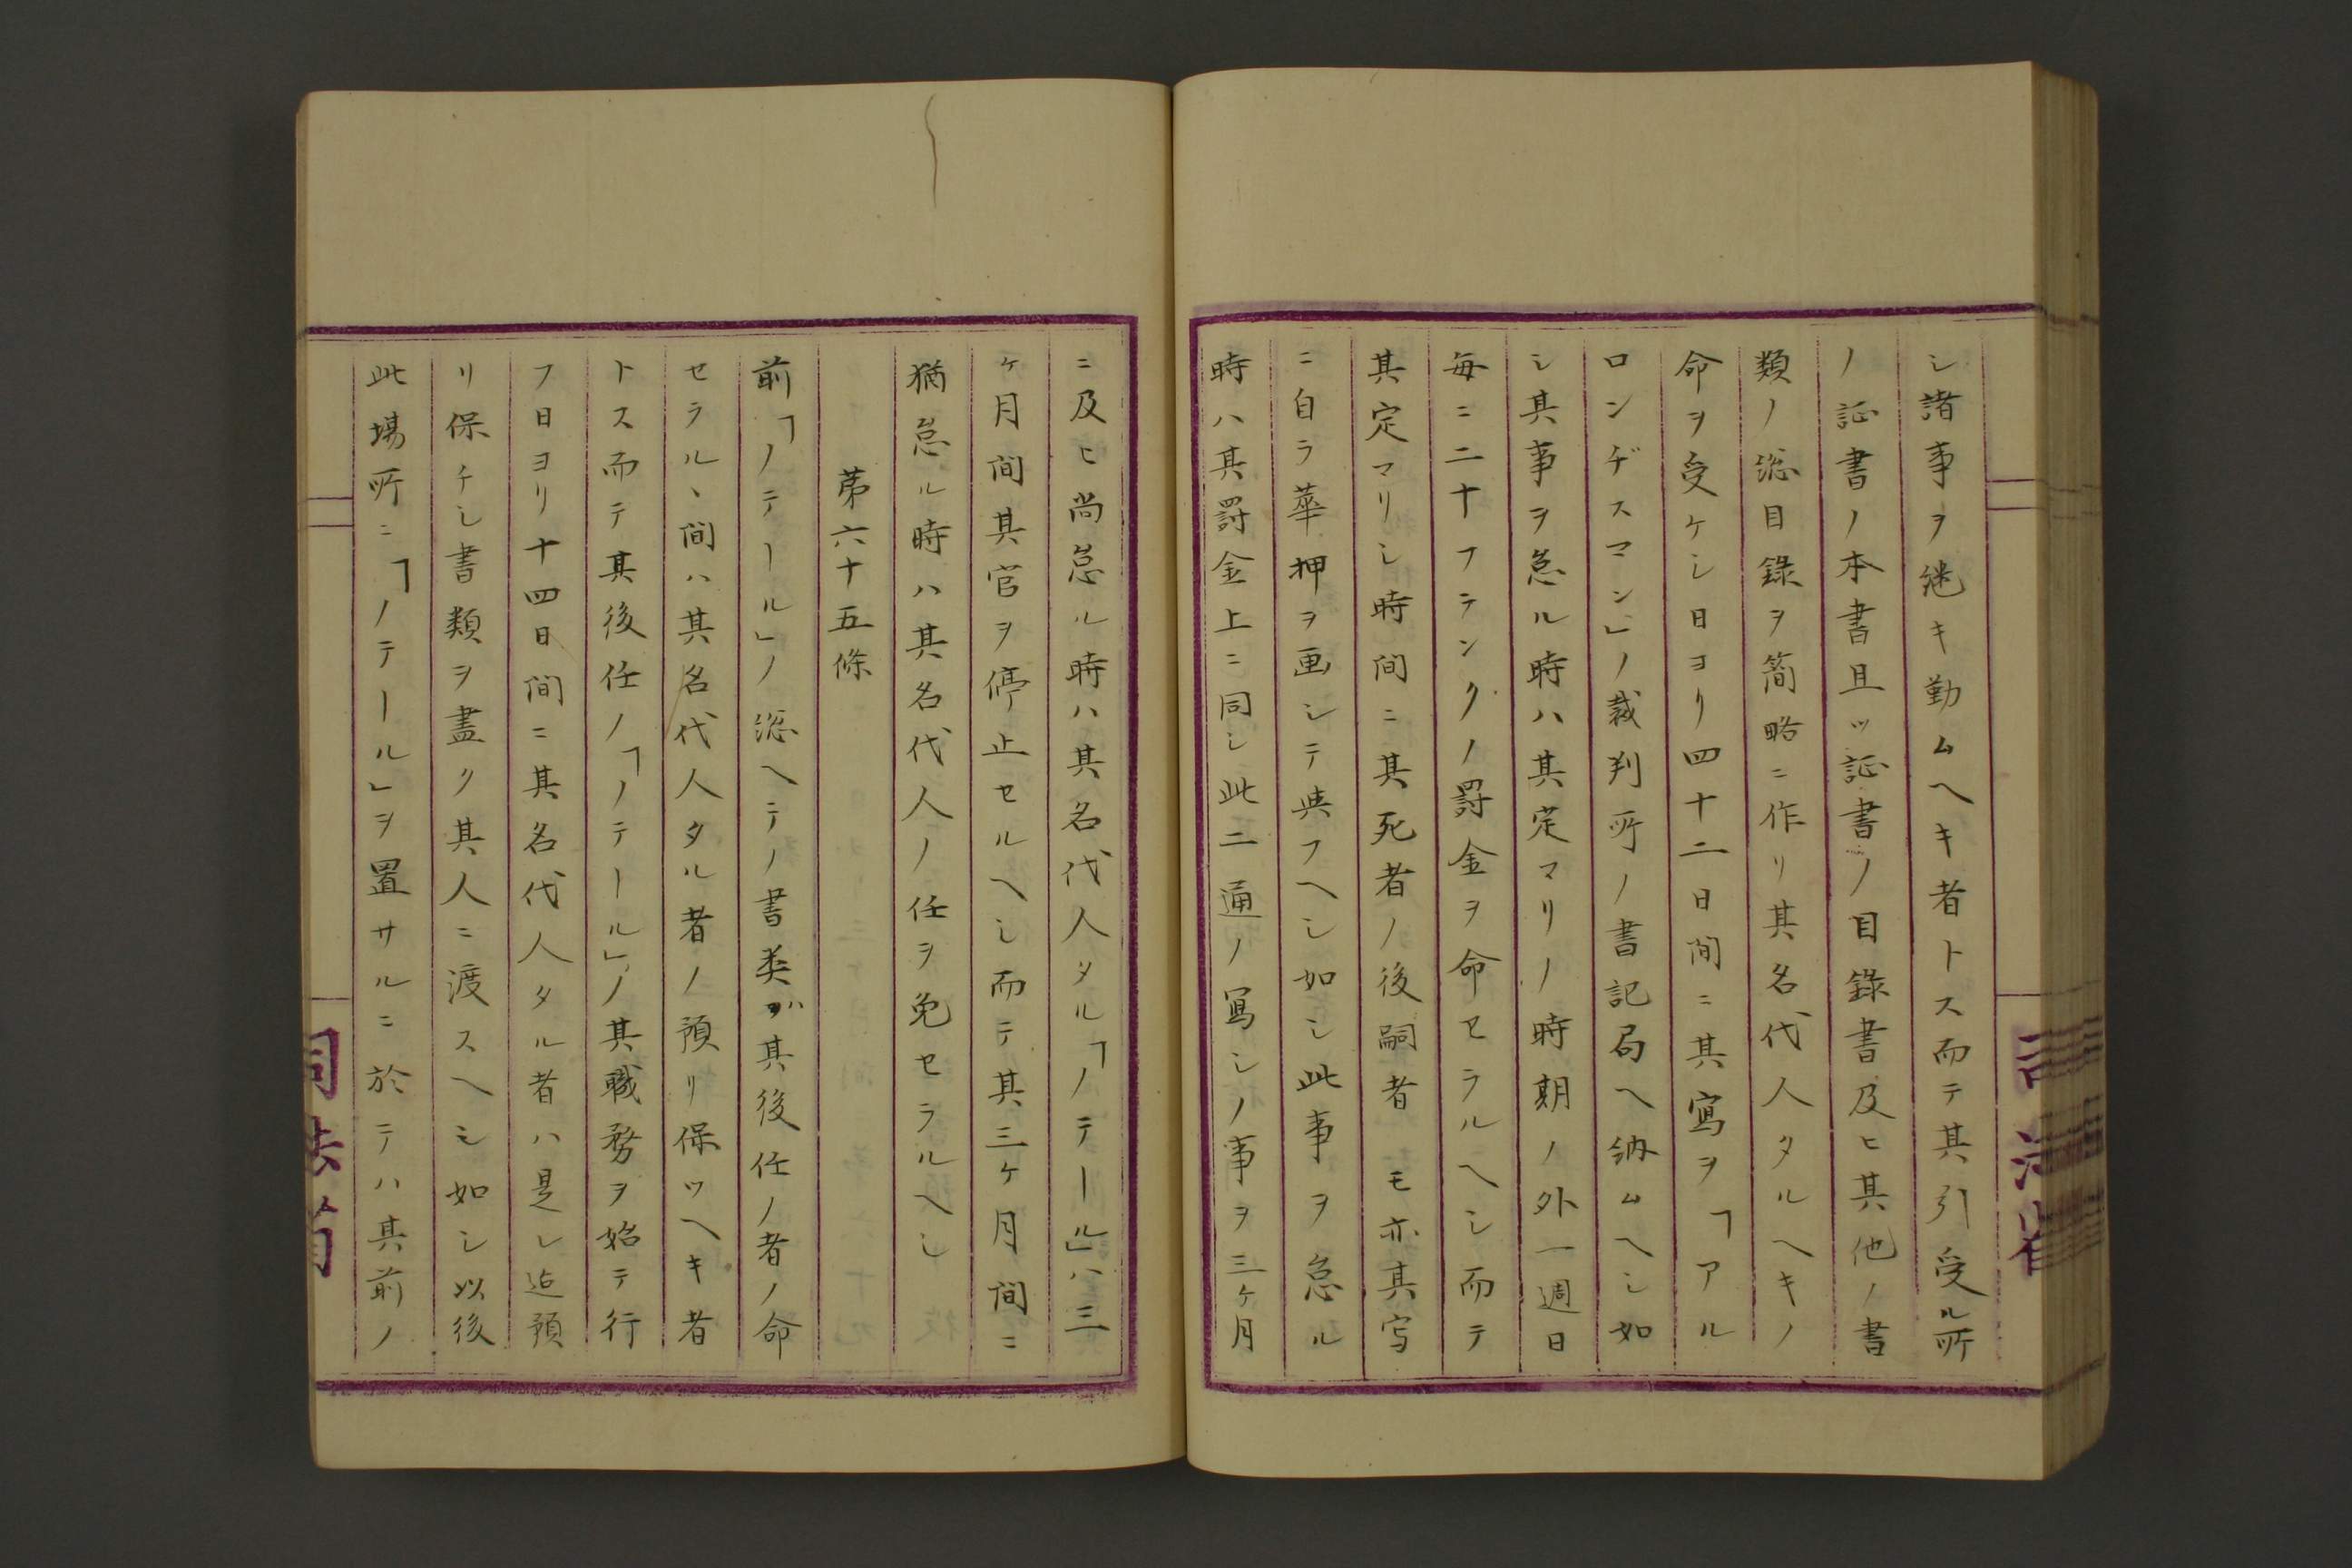 シ諸事ヲ継キ勤ムヘキ者トス而テ其引受ル所
ノ証書ノ本書且ツ証書ノ目録書及ヒ其他ノ書
類ノ総目録ヲ簡略ニ作リ其名代人タルヘキノ
命ヲ受ケシ日ヨリ四十二日間ニ其寫ヲ「アル
ロンヂスマン」ノ裁判所ノ書記局ヘ納ムヘシ如
シ其事ヲ怠ル時ハ其定マリノ時期ノ外一週日
毎ニ二十フランクノ罸金ヲ命セラルヘシ而テ
其定マリシ時間ニ其死者ノ後嗣者モ亦其写
ニ自ラ華押ヲ画シテ与フヘシ如シ此事ヲ怠ル
時ハ其罸金上ニ同シ此二通ノ寫シノ事ヲ三ケ月
ニ及ヒ尚怠ル時ハ其名代人タル「ノテール」ハ三
ケ月間其官ヲ停止セルヘシ而テ其三ケ月間ニ
猶怠ル時ハ其名代人ノ任ヲ免セラルヘシ
第六十五條
前「ノテール」ノ総ヘテノ書类ガ其後任ノ者ノ命
セラルヽ間ハ其名代人タル者ノ預リ保ツヘキ者
トス而テ其後任ノ「ノテール」ノ其職務ヲ始テ行
フ日ヨリ十四日間ニ其名代人タル者ハ是レ迠預
リ保チシ書類ヲ盡ク其人ニ渡スヘシ如シ以後
此場所ニ「ノテール」ヲ置サルニ於テハ其前ノ
司法省